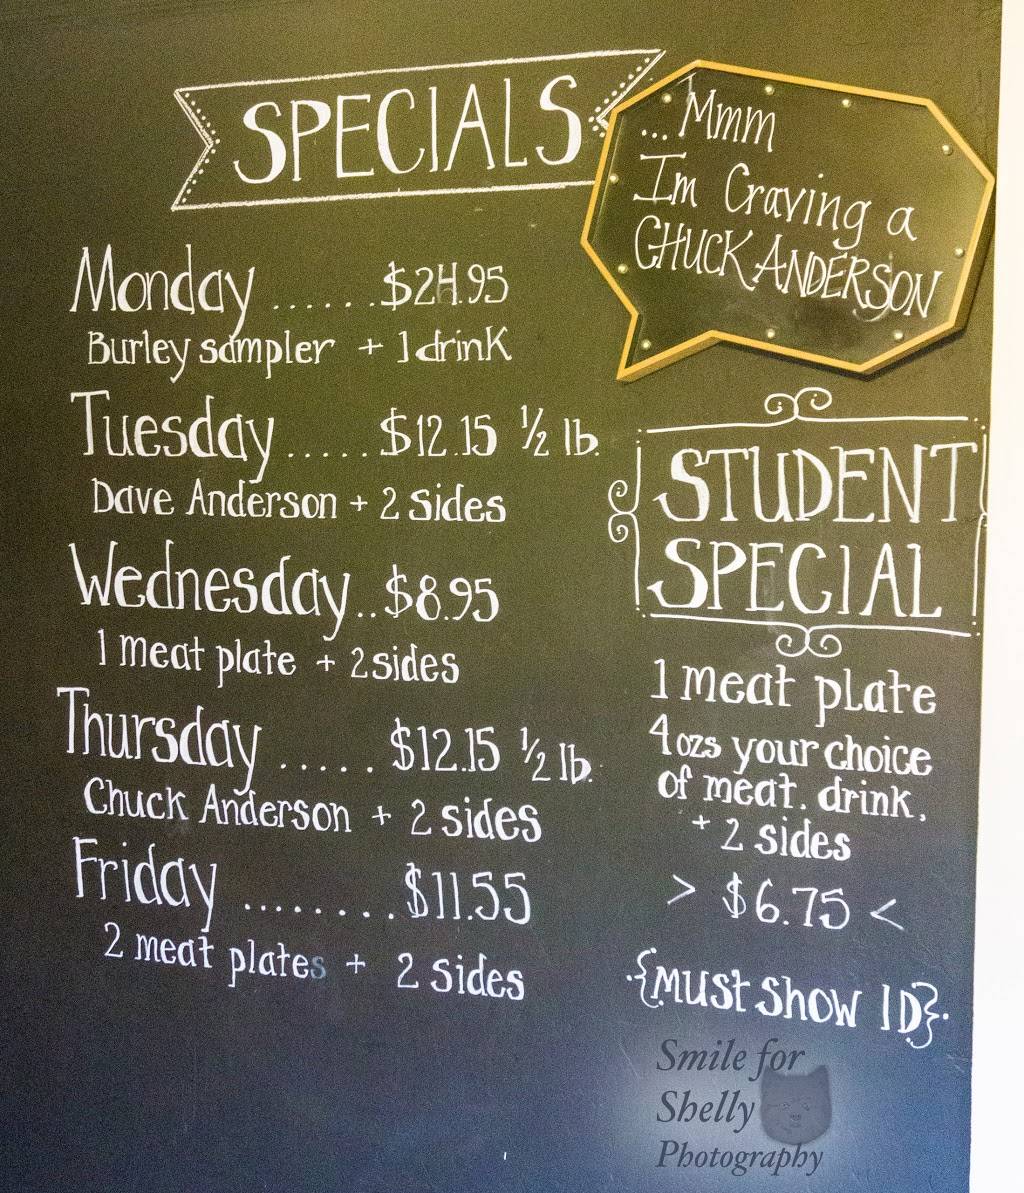 SPECIALS
...Mmm
Im Craving a
CHUCK ANDERSON
Monday ......$24.95
Burley sampler + 1 drink
Tuesday .....$12.15 ½ lb.
Dave Anderson + 2 Sides
Wednesday..$8.95
1 meat plate + 2 sides
Thursday .....$12.15 ½ lb.
Chuck Anderson + 2 sides
Friday ........$11.55
2 meat plates + 2 Sides
STUDENT
SPECIAL
1 meat plate
4 ozs your choice
of meat. drink,
+ 2 sides
> $6.75 <
{Must Show ID}
Smile for
Shelly
Photography